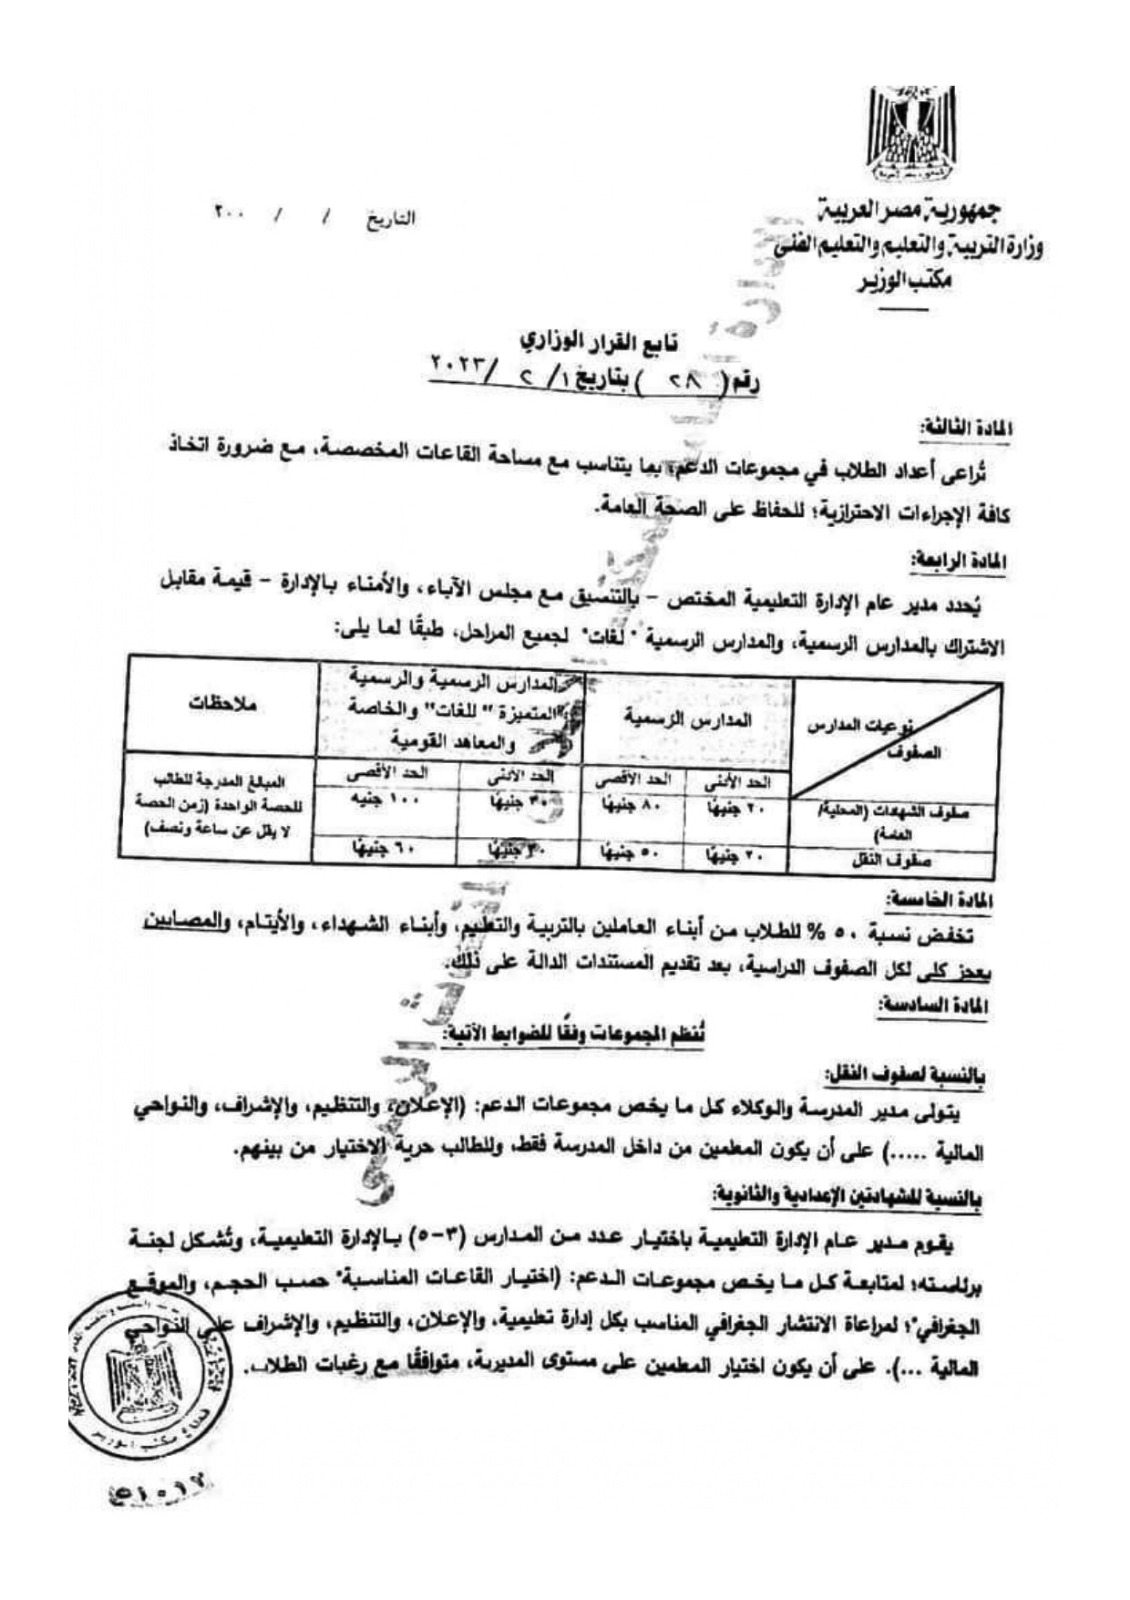 جمهورية مصر العربية
وزارة التربية والتعليم والتعليم الفنى
مكتب الوزير
التاريخ / / ٢٠٠
تابع القرار الوزاري
رقم ( ٢٨ ) بتاريخ ١ / ٢ / ٢٠٢٣
المادة الثالثة:
تُراعى أعداد الطلاب في مجموعات الدعم؛ بما يتناسب مع مساحة القاعات المخصصة، مع ضرورة اتخاذ
كافة الإجراءات الاحترازية؛ للحفاظ على الصحة العامة.
المادة الرابعة:
يُحدد مدير عام الإدارة التعليمية المختص – بالتنسيق مع مجلس الآباء، والأمناء بالإدارة – قيمة مقابل
الاشتراك بالمدارس الرسمية، والمدارس الرسمية " لغات" لجميع المراحل، طبقًا لما يلى:
نوعيات المدارس
الصفوف
المدارس الرسمية
المدارس الرسمية والرسمية
المتميزة " للغات" والخاصة
والمعاهد القومية
ملاحظات
الحد الأدنى الحد الأقصى الحد الأدنى الحد الأقصى
صفوف الشهادات (المحلية/
العامة)
٢٠ جنيهًا ٨٠ جنيهًا ٣٠ جنيهًا ١٠٠ جنيه
صفوف النقل ٢٠ جنيهًا ٥٠ جنيهًا ٣٠ جنيهًا ٦٠ جنيهًا
المبالغ المدرجة للطالب
للحصة الواحدة (زمن الحصة
لا يقل عن ساعة ونصف)
المادة الخامسة:
تخفض نسبة ٥٠ % للطلاب من أبناء العاملين بالتربية والتعليم، وأبناء الشهداء، والأيتام، والمصابين
بعجز كلى لكل الصفوف الدراسية، بعد تقديم المستندات الدالة على ذلك.
المادة السادسة:
تُنظم المجموعات وفقًا للضوابط الآتية:
بالنسبة لصفوف النقل:
يتولى مدير المدرسة والوكلاء كل ما يخص مجموعات الدعم: (الإعلان، والتنظيم، والإشراف، والنواحي
المالية .....) على أن يكون المعلمين من داخل المدرسة فقط، وللطالب حرية الاختيار من بينهم.
بالنسبة للشهادتين الإعدادية والثانوية:
يقوم مدير عام الإدارة التعليمية باختيار عدد من المدارس (٣-٥) بالإدارة التعليمية، وتُشكل لجنة
برئاسته؛ لمتابعة كل ما يخص مجموعات الدعم: (اختيار القاعات المناسبة" حسب الحجم، والموقع
الجغرافي"؛ لمراعاة الانتشار الجغرافي المناسب بكل إدارة تعليمية، والإعلان، والتنظيم، والإشراف على النواحي
المالية ...). على أن يكون اختيار المعلمين على مستوى المديرية، متوافقًا مع رغبات الطلاب.